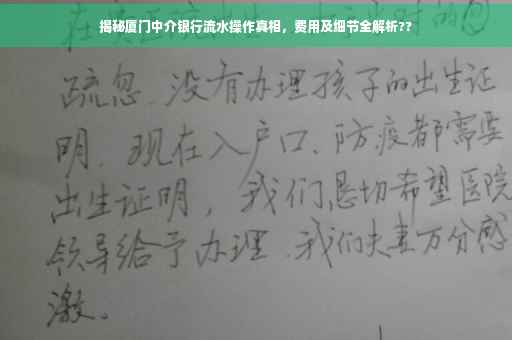 揭秘厦门中介银行流水操作真相，费用及细节全解析??
在
疏忽、没有办理孩子的出生证
明、现在入户口、防疫都需要
出生证明，我们恳切希望医院
领导给予办理、我们夫妻万分感
激。